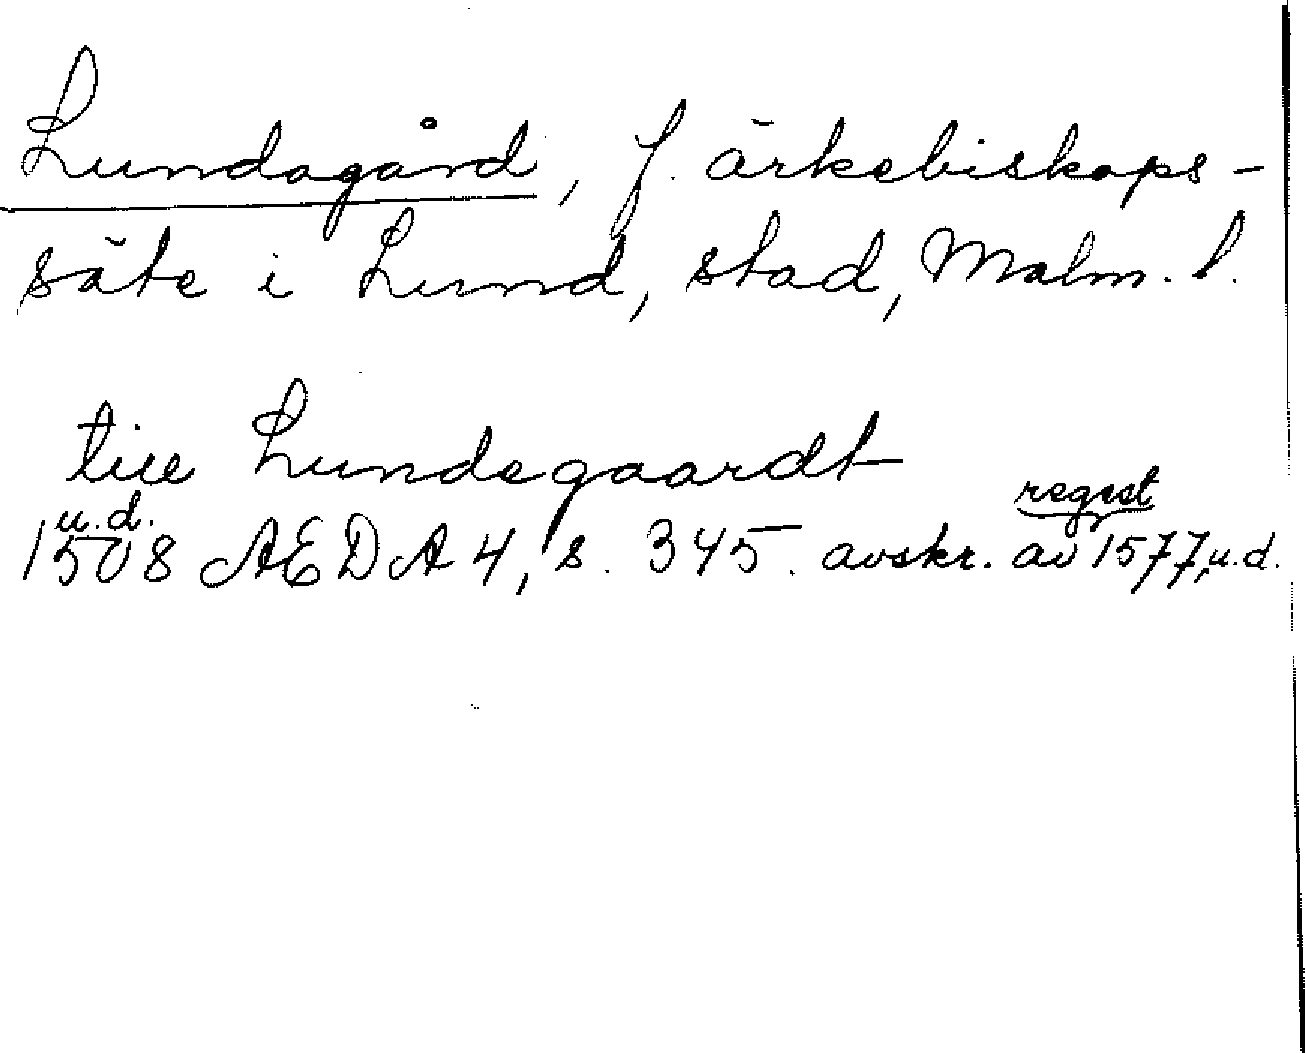 Lundagård, f. ärkebiskops-
säte i Lund, stad, Malm. l.
till Lundegaardt
u.d. regest
1508 AEDA 4, s. 345. avskr. av 1577, u.d.